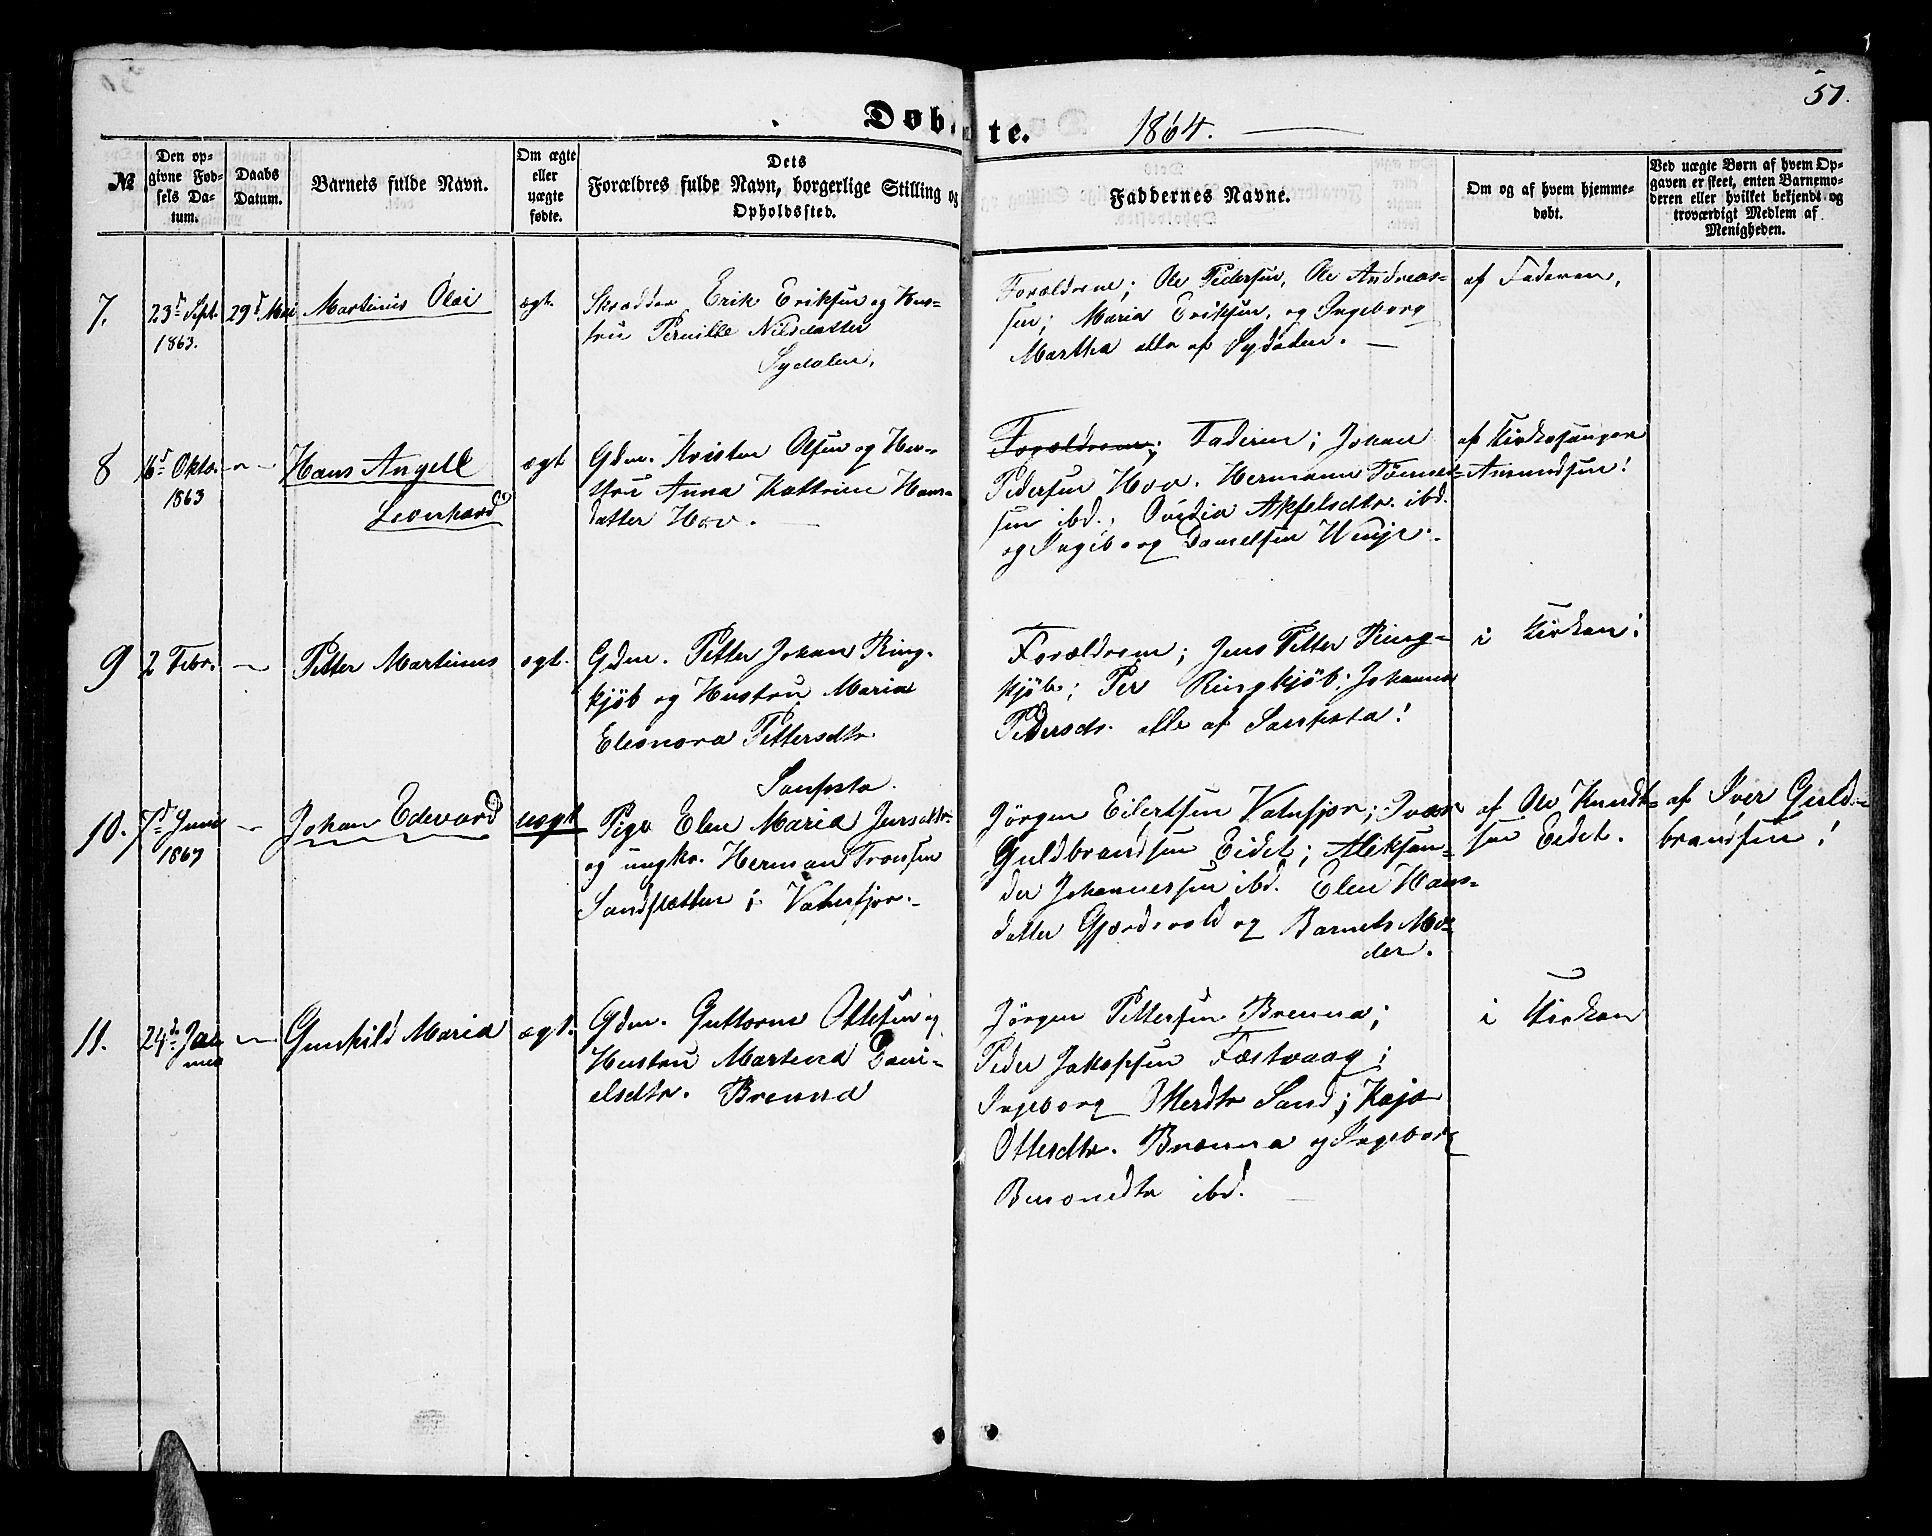 51.
Døbte. 1864.
№
Den op-
givne Fød-
sels Da-
tum.
Daabs
Datum.
Barnets fulde Navn.
Om ægte
eller
uægte
fødte.
Dets
Forældres fulde Navn, borgerlige Stilling og
Opholdssted.
Faddernes Navne.
Om og af hvem hjemme-
døbt.
Ved uægte Børn af hvem Op-
gaven er skeet, enten Barnemo-
deren eller hvilket bekjendt og
troværdigt Medlem af
Menigheden.
7.
23d Sept.
1863.
29d Mai
Martinus Olai
ægt.
Skrædder Erik Eriksen og Hus-
tru Pernille Nilsdatter
Sydalen.
Forældrene; Ole Pedersen, Ole Andreas-
sen; Maria Eriksen, og Ingeborg
Martha alle af Sydalen.
af Faderen.
8
16d Oktbr.
1863
Hans Angell
Leonhard
ægt
Gdm. Kristen Olsen og Hu-
stru Anna Kattrine Hans-
datter Hov.
Forældrene; Faderen; Johan
Pedersen Hov. Hermann Tønnes-
sen ibd., Ovidia Akselsdtr. ibd.
og Ingeborg Danielsen Winje.
af Kirkesanger
Amundsen!
9
2 Febr.
Petter Martinus
ægt.
Gdm. Petter Johan Ring-
kjøb og Hustru Maria
Eleonora Pettersdtr
Sanpsta.
Forældrene; Jens Petter Ring-
kjøb; Per Ringkjøb; Johanna
Pedersdr. alle af Sanpsta!
i Kirken!
10.
7d Juni
1867
Johan Edevard
uægt
Pige Elen Maria Jensdtr.
og ungkr. Herman Tronsen
Sandsletten i Vatnfjor.
Jørgen Eilertsen Vatnfjor; Ivar
Guldbrandsen Eidet; Aleksan-
der Johannessen ibd. Elen Hans-
datter Gjærdevold og Barnets Mo-
der.
af Ole Knudt-
sen Eidet.
af Iver Guld-
brandsen!
11.
24d Ja
nuar
Gunhild Maria
ægt.
Gdm. Guttorm Ottesen og
Hustru Martina Dani-
elsdtr. Brenna
Jørgen Pettersen Brenna;
Peder Jakopsen Fæstvaag;
Ingeborg Ottersdtr Sand; Kaja
Ottesdtr. Brenna og Ingebor
Bersonsdtr ibd.
i Kirken